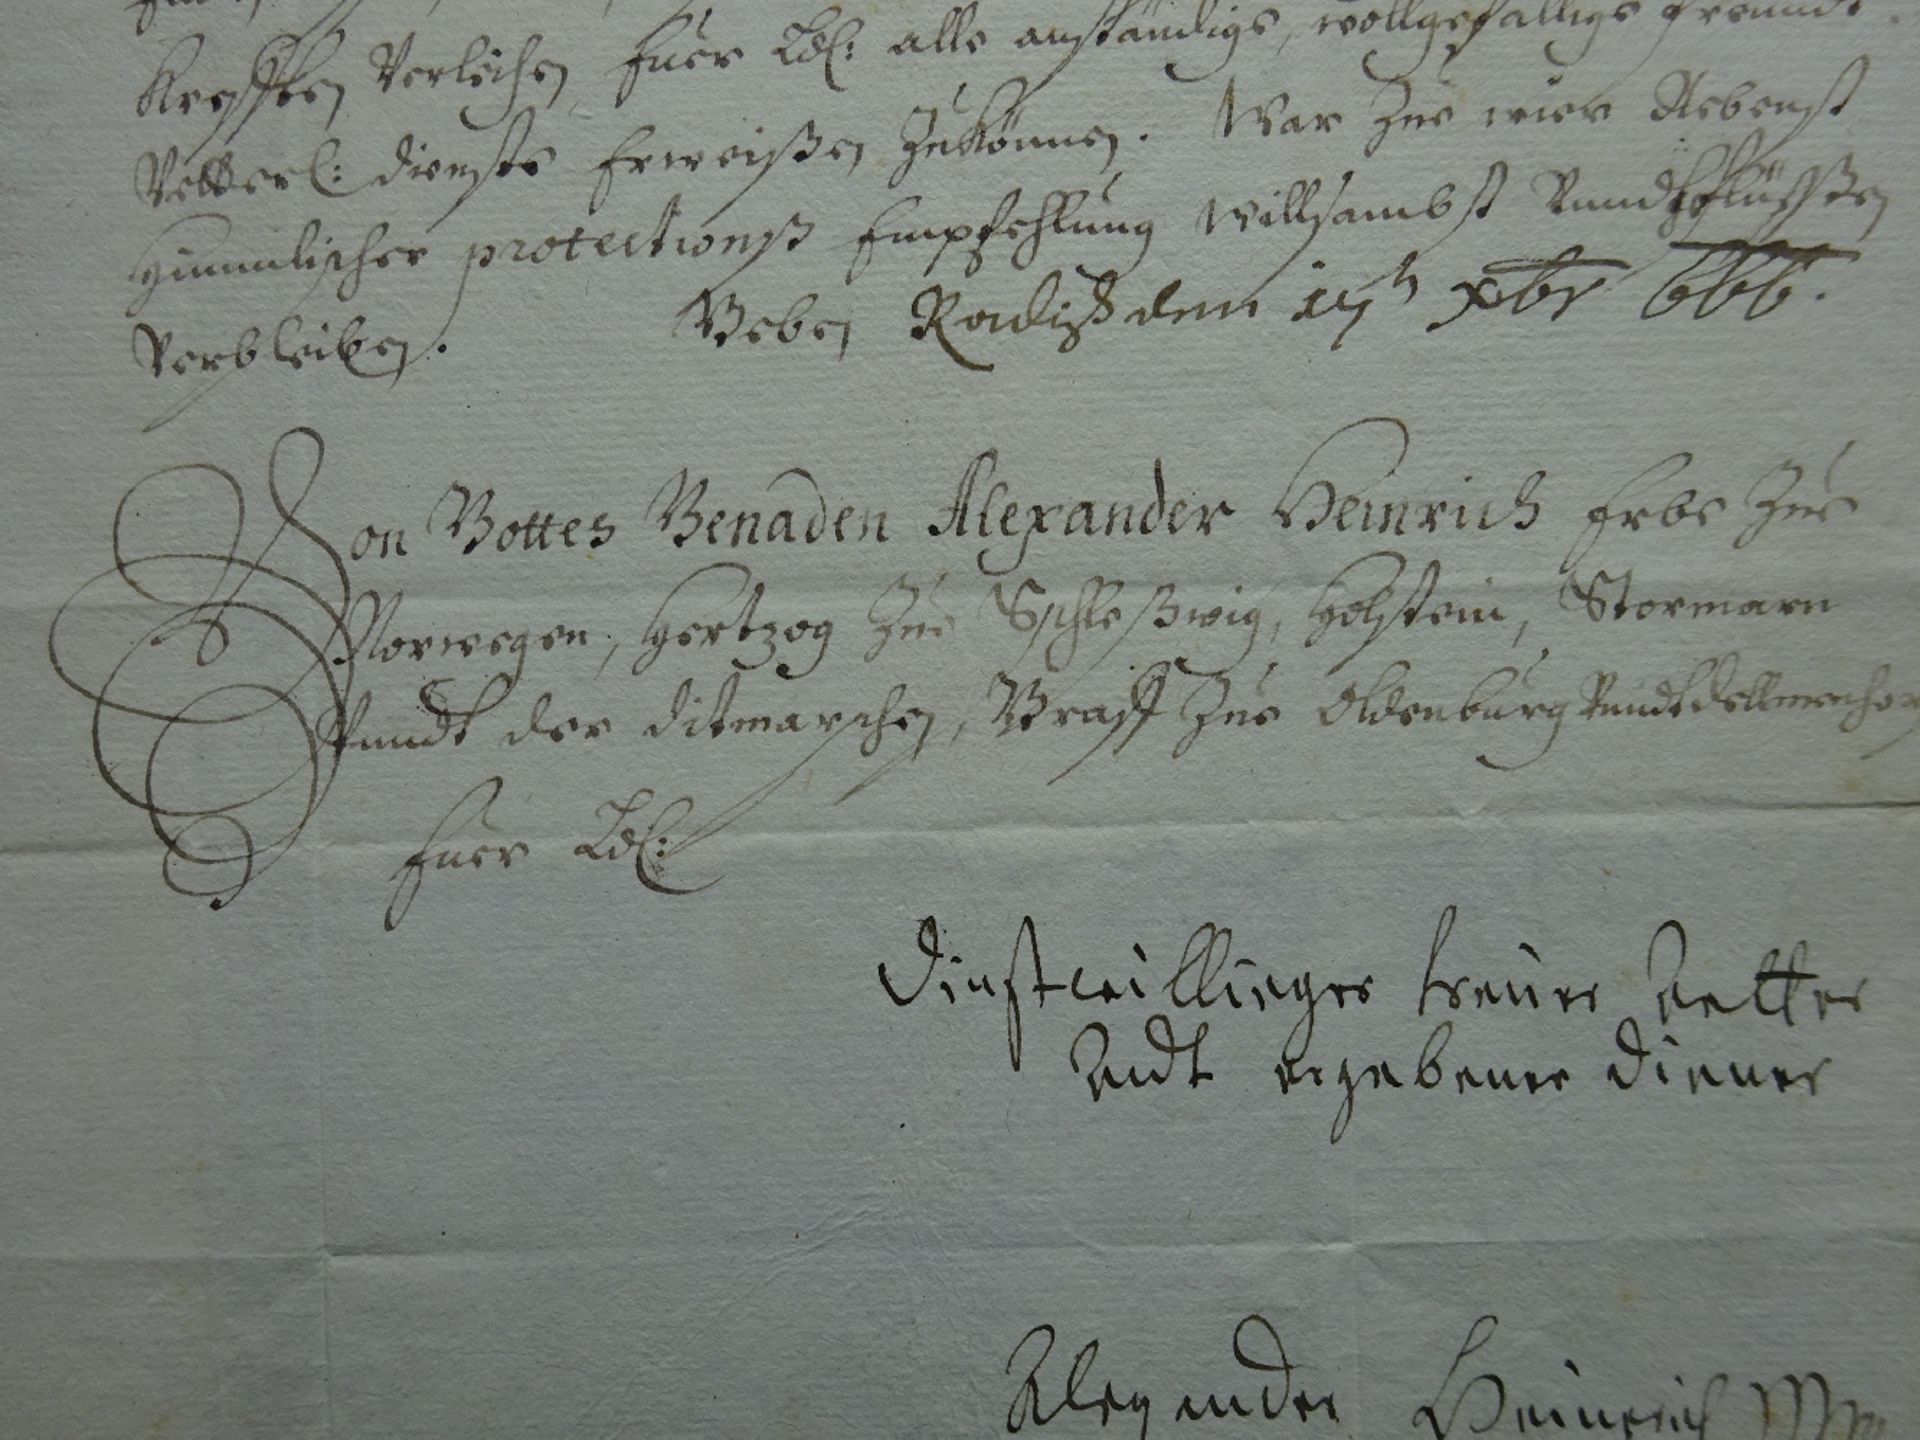 Kreffften Verleihen, Euer Ld: alle anständige, wollgefällige freundt
Vetterl: dienste Erweißen Zukönnen. War Zue wier Nebenst
Himmlischer protectionß Empfehlung willsambst Vundt
Verbleiben. Geben Radiß den 17t xbr 666.
Von Gottes Genaden Alexander Heinrich Erbe Zue
Norwegen, Hertzog Zue Schleßwig, Holstein, Stormarn
Vundt der Ditmarschen, Graff Zue Oldenburg Vundt dellmenhor
Euer Ld:
Dinstwillieger treuer Vetter
Undt ergebener Diener
Alexander Heinrich